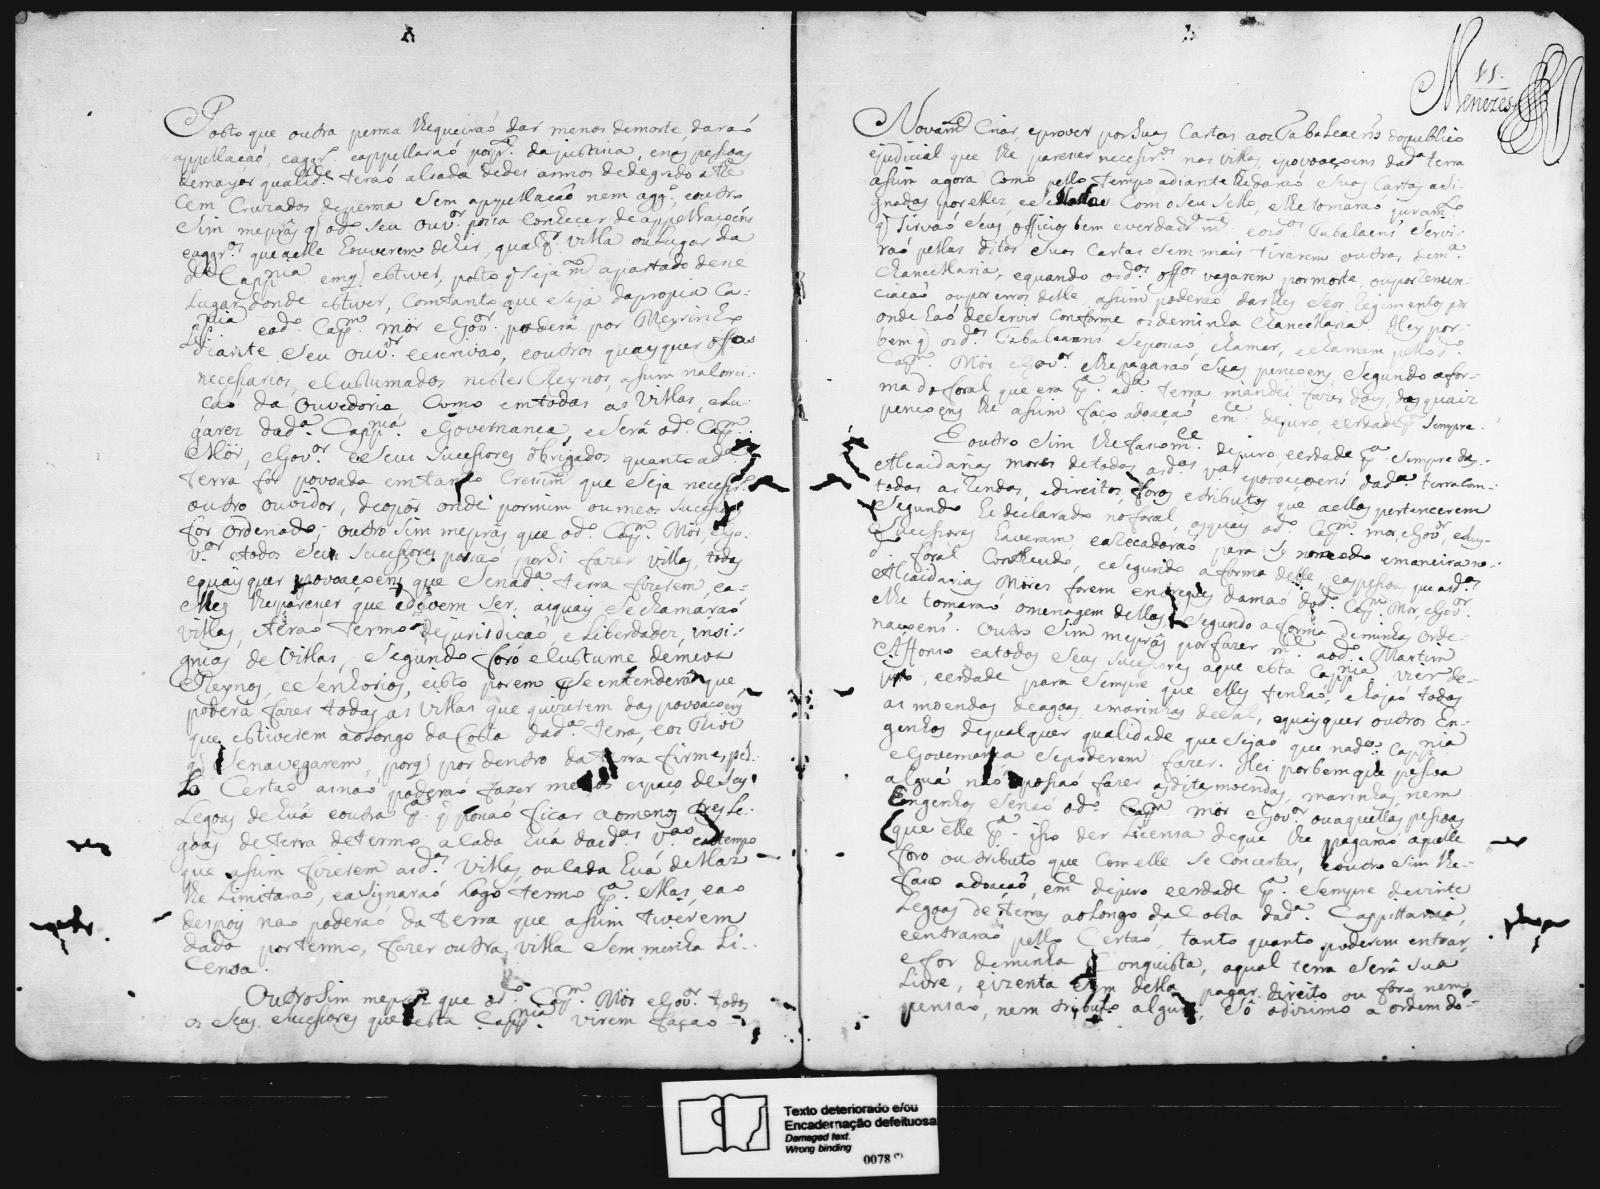 Posto que outra penna Requeiraõ dar menos demorte, daraõ
appellacaõ, eaggr.º eappellaraõ por p.te dajustiça, enas pessoas
demayor qualid.e teraõ alsada dedes annos dedegredo athe
Cem Cruzados depenna Sem appellacaõ nem agg.º eoutro
Sim mepras q̃ od.º seu ouv.or possa Conhecer deappellaçoens
eaggr.os que aelle houverem de hir, qualq.r villa ou Lugar da
d.a Capp.nia emq̃ estiver, posto q̃ seja m.to apartado desse
Lugar donde estiver, Comtanto que seja dapropria Ca-
p.nia eod.º Cap.m mór eGov.or poderá por Meyrinho
diante Seu ouv.or eescrivaõ, eoutros quaysquer off.os
necessarios, eCustumados nestes Reynos, assim nacorrei-
caõ da Ouvedoria, Como emtodas as Villas, eLu-
gares dad.a Capp.nia eGovernança, eSerá od.º Cap.m
Mór, eGov.or eseus Sucessores obrigados quanto ad.a
terra for povoada emtanto Crescim.to que seja necessr.º
outro ouvidor, depor onde pormim ou meos Sucessores
for ordenado; outro Sim mepras que od.º Cap.m Mór, eGo-
v.or etodos Seus Sucessores possaõ porSi fazer villas, todas
equaysquer povoaçoens que Senad.a terra fizerem, ea-
elles lhe parecer que deuem Ser, aquays Se Chamaraõ
Villas, eteraõ termo dejurisdiçaõ, eLiberdades, insi-
gnias de Villas, Segundo foro eCustume demeos
Reynos, eSenhorios, eisto porem Se entenderá que
poderá fazer todas as Villas que quizerem das povoaçoens
que estiverem aoLongo daCosta dad.a terra, eos Rios
q̃ Senavegarem, porq̃ por dentro da terra firme, pel-
Lo Certaõ asnaõ poderaõ fazer menos espaço de Seis
Legoas de huã aoutra p.a q̃ possaõ ficar aomenos tres Le-
goas de terra determo acada huã dasd.as V.as eaotempo
que assim fizerem asd.as Villas, ou cada huã dellas
lhe Limitaraõ, easignaraõ Logo termo p.a ellas, eao
despois naõ poderaõ da terra que assim tiverem
dado por termo, fazer outra villa Sem minha Li-
Cenca.
OutroSim mepras que od.º Cap.m Mór eGov.or todos
os Seus Sucessores que aesta Capp.nia virem façaõ
11.
Menezes
Novam.te Criar, eprover por Suas Cartas aos Tabaleaens dopublico
ejudicial que lhe parecer necessr.os nas villas epovoaçoens dad.a terra
assim agora Como pello tempo adiante lhedaraõ Suas Cartas asi-
gnadas porelles, eSelladas Com oseu Sello, elhetomaraõ juram.to
q̃ Sirvaõ Seus officios bem everdadr.am.te eosd.os Tabalaens Servi-
raõ pellas ditas Suas Cartas Sem mais tirarem outras dem.a
Chancellaria, equando osd.os off.os vagarem pormorte, ouporRenun-
ciaçaõ ouporerros delle assim poderaõ darlhes Seos Regimentos por
onde haõ deServir Conforme osdeminha Chancellaria. Hey por-
bem q̃ osd.os Tabaleaens Sepossaõ chamar, eChamem pello d.º
Cap.m Mór eGov.or elhepagaraõ Suas pençoens, Segundo afor-
ma do foral que era p.a ad.a terra mandei fazer, das quais
pençoens lhe assim faço adoaçaõ em.ce dejuro, eerdade p.a sempre.
Eoutro Sim lhefaso m.ce dejuro, eerdade p.a Sempre das
Alcaidarias mores detodas asd.as v.as epovoaçoens dad.a terra Com
todas as Rendas, edireitos foros etributos que aellas pertencerem
Segundo he declarado noforal, asquays od.º Cap.m mor eGov.or, eSeus
Sucessores haveram, earecadaraõ para Sy nomodo emaneira no
d. foral Contheudo, eSegundo aforma delle, easpessoas queasd.as
Alcaidarias Mores forem entregues damaõ dod.º Cap.m Mór eGov.or
elhe tomaraõ omenagem dellas Segundo aforma deminhas Orde-
naçoens. Outro Sim mepras porfazer m.ce aod.º Martim
Affonso eatodos Seus Sucessores aque esta Capp.nia vier de-
juro, eerdade para Sempre que elles tenhaõ, ehajaõ todas
as moendas deagoas, emarinhas deSal, equaysquer outros En-
genhos dequalquer qualidade que Sejaõ que nad.a Capp.nia
eGovernança Sepoderem fazer. Hei porbem que pessoa
alguã naõ possaõ fazer asditasmoendas, marinhas, nem
Engenhos Senaõ od.º Cap.m mór eGov.or ouaquellas pessoas
que elle p.a isso der Licensa deque lhe pagaraõ aquelle
foro outributo que Comelle Se Concertar, Eoutro Sim lhe
faso adoaçaõ, em.ce dejuro eerdade p.a Sempre devinte
Legoas de terra aoLongo daCosta dad.a Cappitania,
eentraraõ pello Certaõ, tanto quanto poderem entrar,
efor deminha Conquista, aqual terra Será sua
Livre, eizenta Sem della pagar direito ou foro nem
pensaõ, nem tributo algum, Só odizimo a ordem do
Texto deteriorado e/ou
Encadernação defeituosa
Damaged text.
Wrong binding
0078 (*)